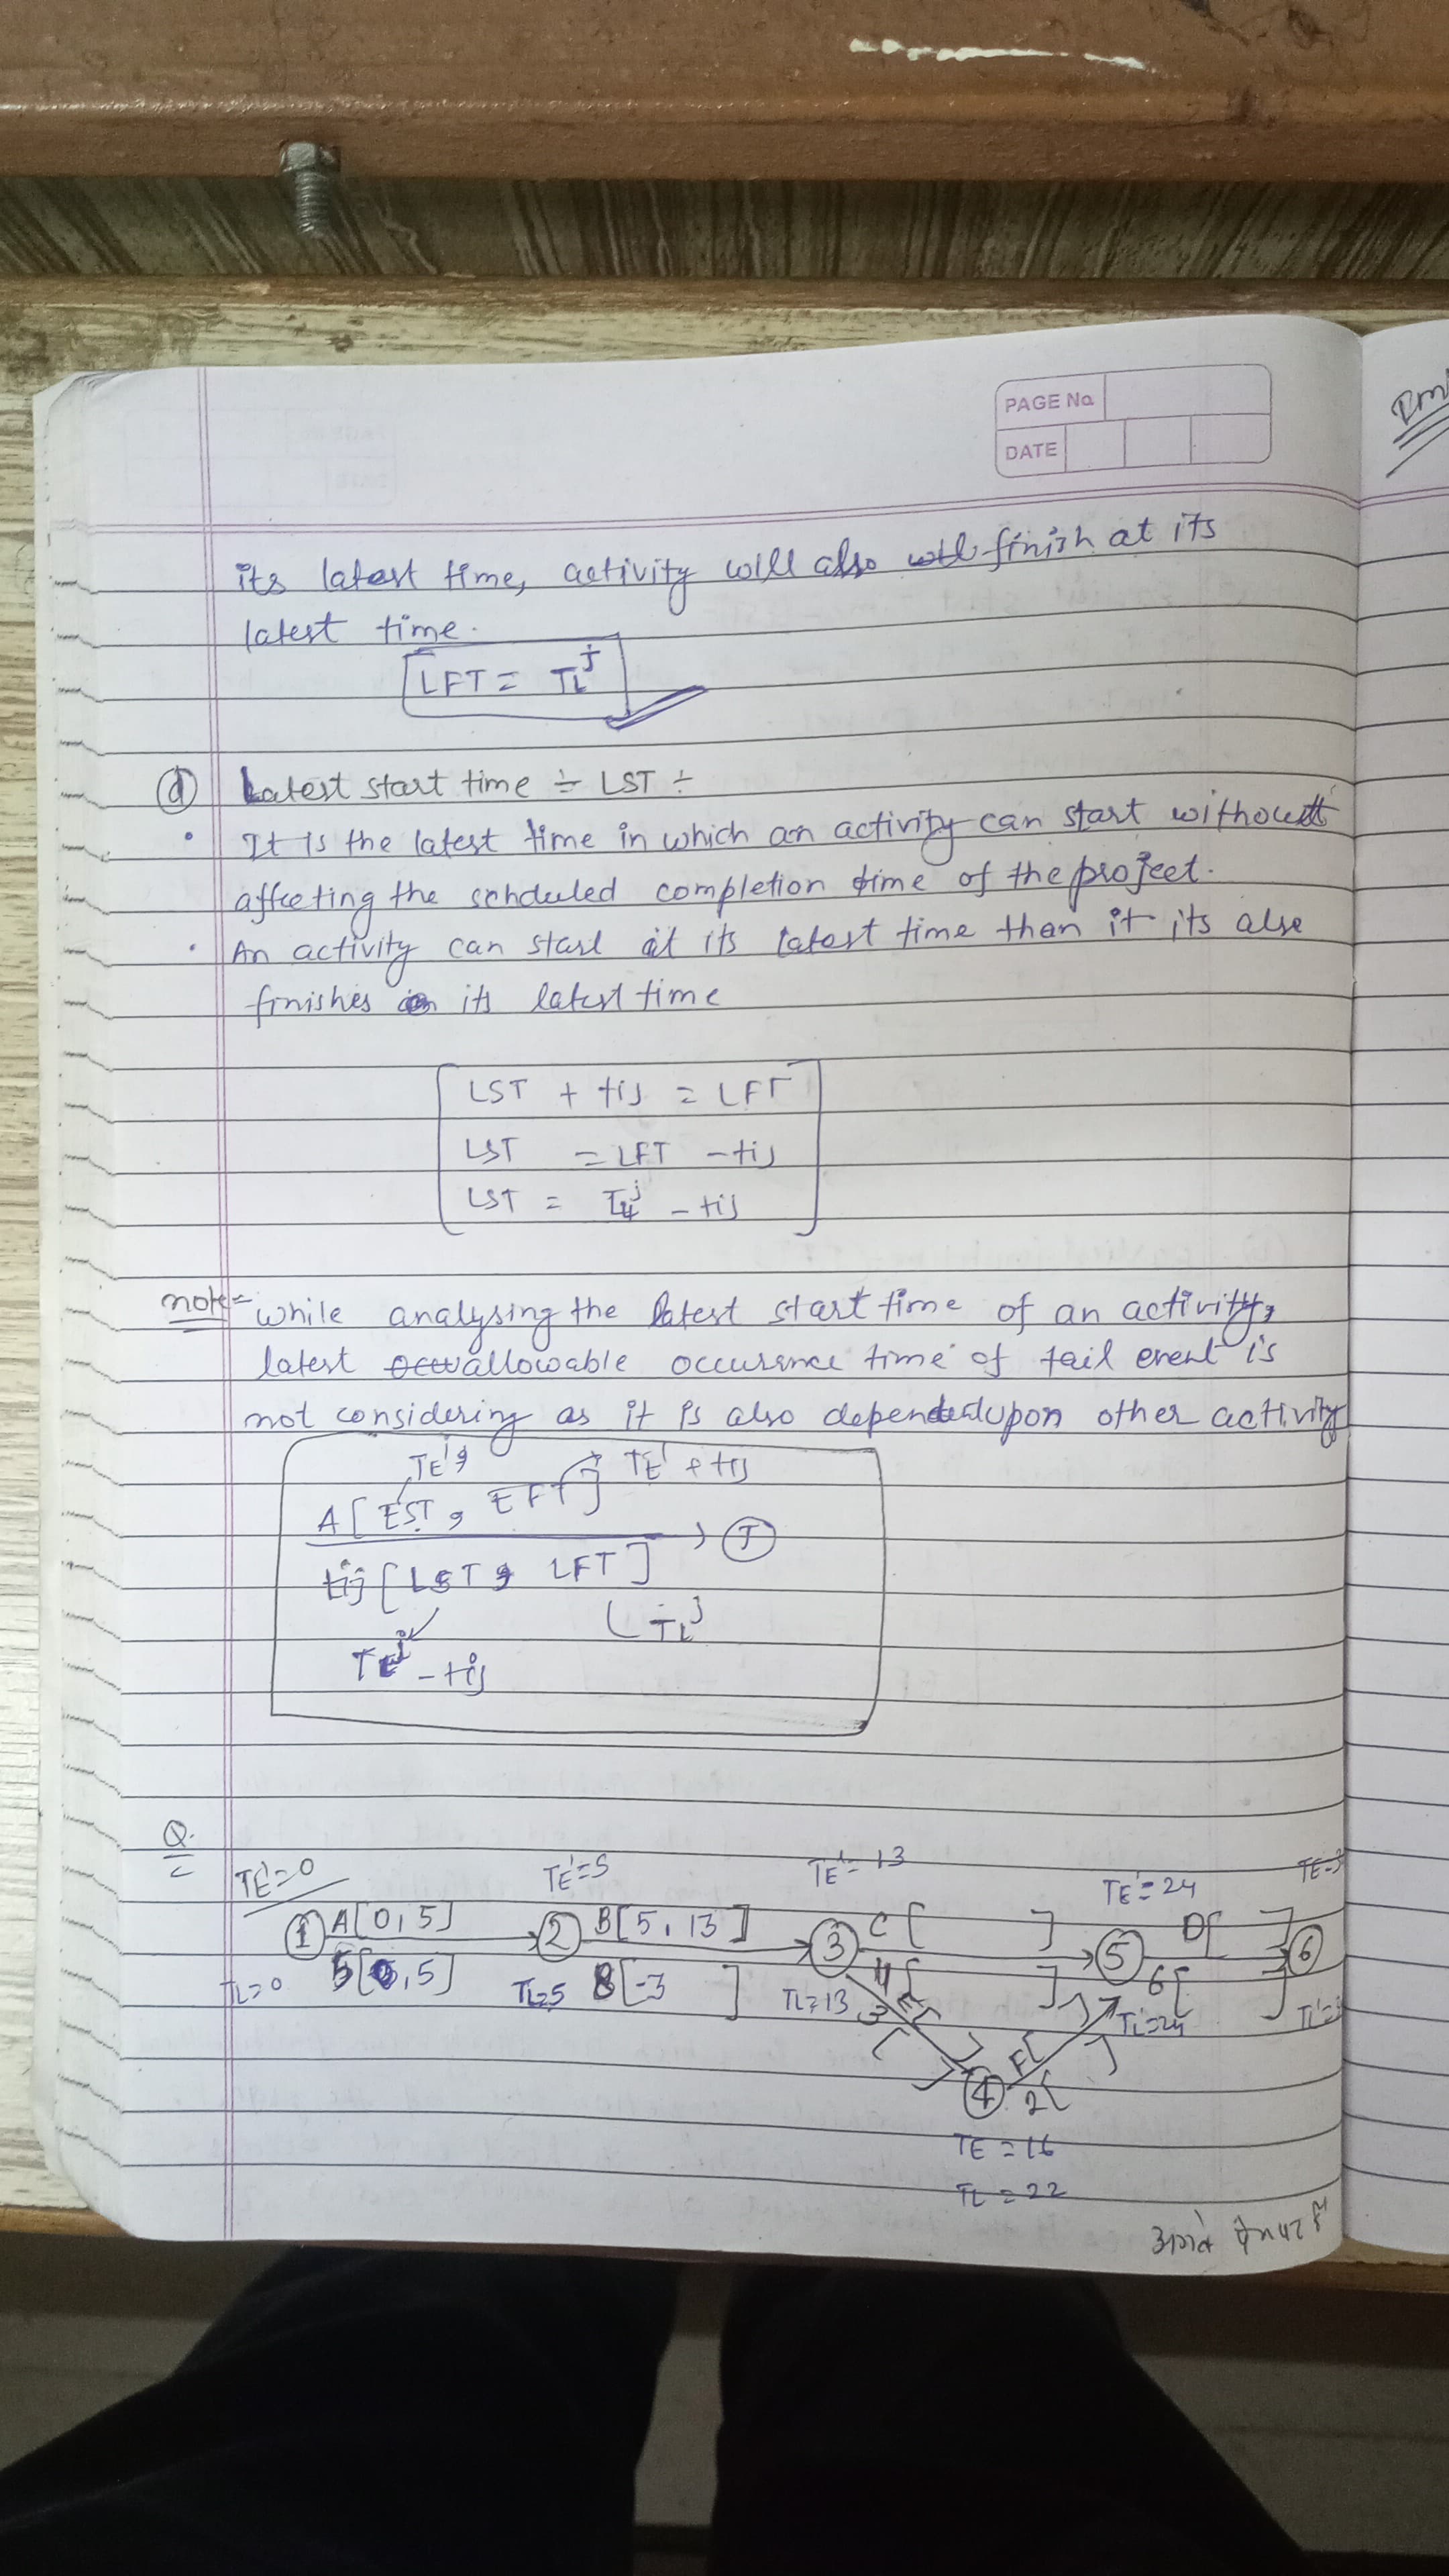 PAGE No
DATE
its latest time, activity will also will finish at its
latest time.
LFT = TL^j
(d) Latest start time ÷ LST ÷
• It is the latest time in which an activity can start without
affecting the schduled completion time of the project.
• An activity can start at its latest time than it its also
finishes on its latest time
LST + tij = LFT
LST = LFT - tij
LST = TL^j - tij
note= while analysing the latest start time of an activity,
latest allowable occurence time of tail event is
not considering as it is also depended upon other activity
TE^i, TE^i + tij
A [EST, EFT]
J
tij [LST, LFT]
TL^j
TE^j - tij
Q.
TE^1=0 TE^1=5 TE^1=13 TE^1=24 TE=3
1 A[0,5] 2 B[5, 13] 3 C[ ] 5 D[ ] 6
TL=0 5[0,5] TL=5 8[-3 ] TL=13 11[ ] 6[ ]
3 E[ ] TL=24
[ ] F[ ]
4 2[
TE = 16
TL = 22